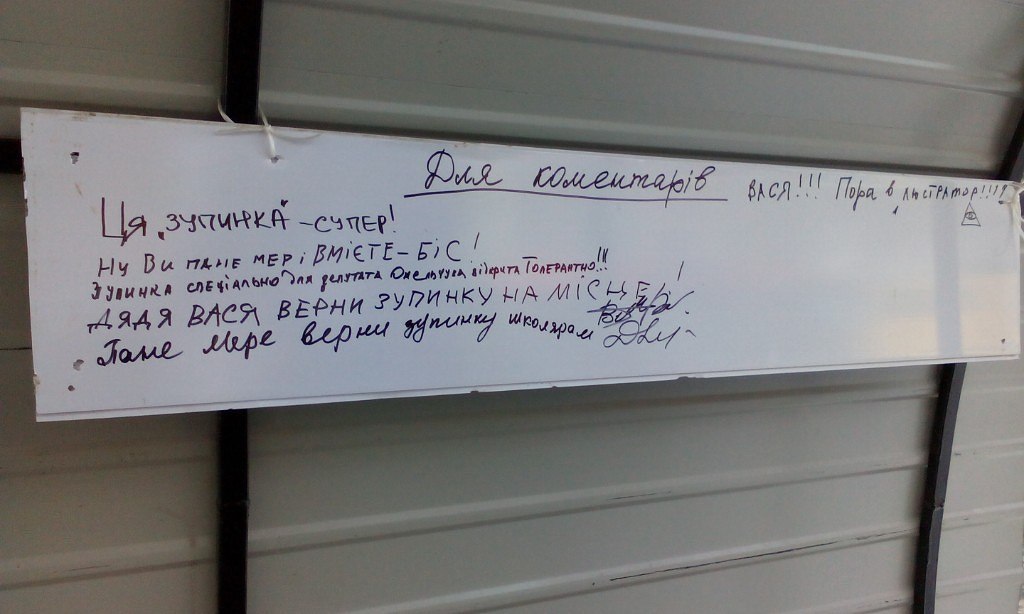 Для коментарів
ВАСЯ!!! Пора в люстратор!!!!
Ця "ЗУПИНКА" – СУПЕР!
Ну Ви пане мер і ВМІЄТЕ – БІС!
Зупинка спеціально для депутата Омельчука відкрита Толерантно!!!
ДЯДЯ ВАСЯ ВЕРНИ ЗУПИНКУ НА МІСЦЕ!
Пане мере верни зупинку школярам